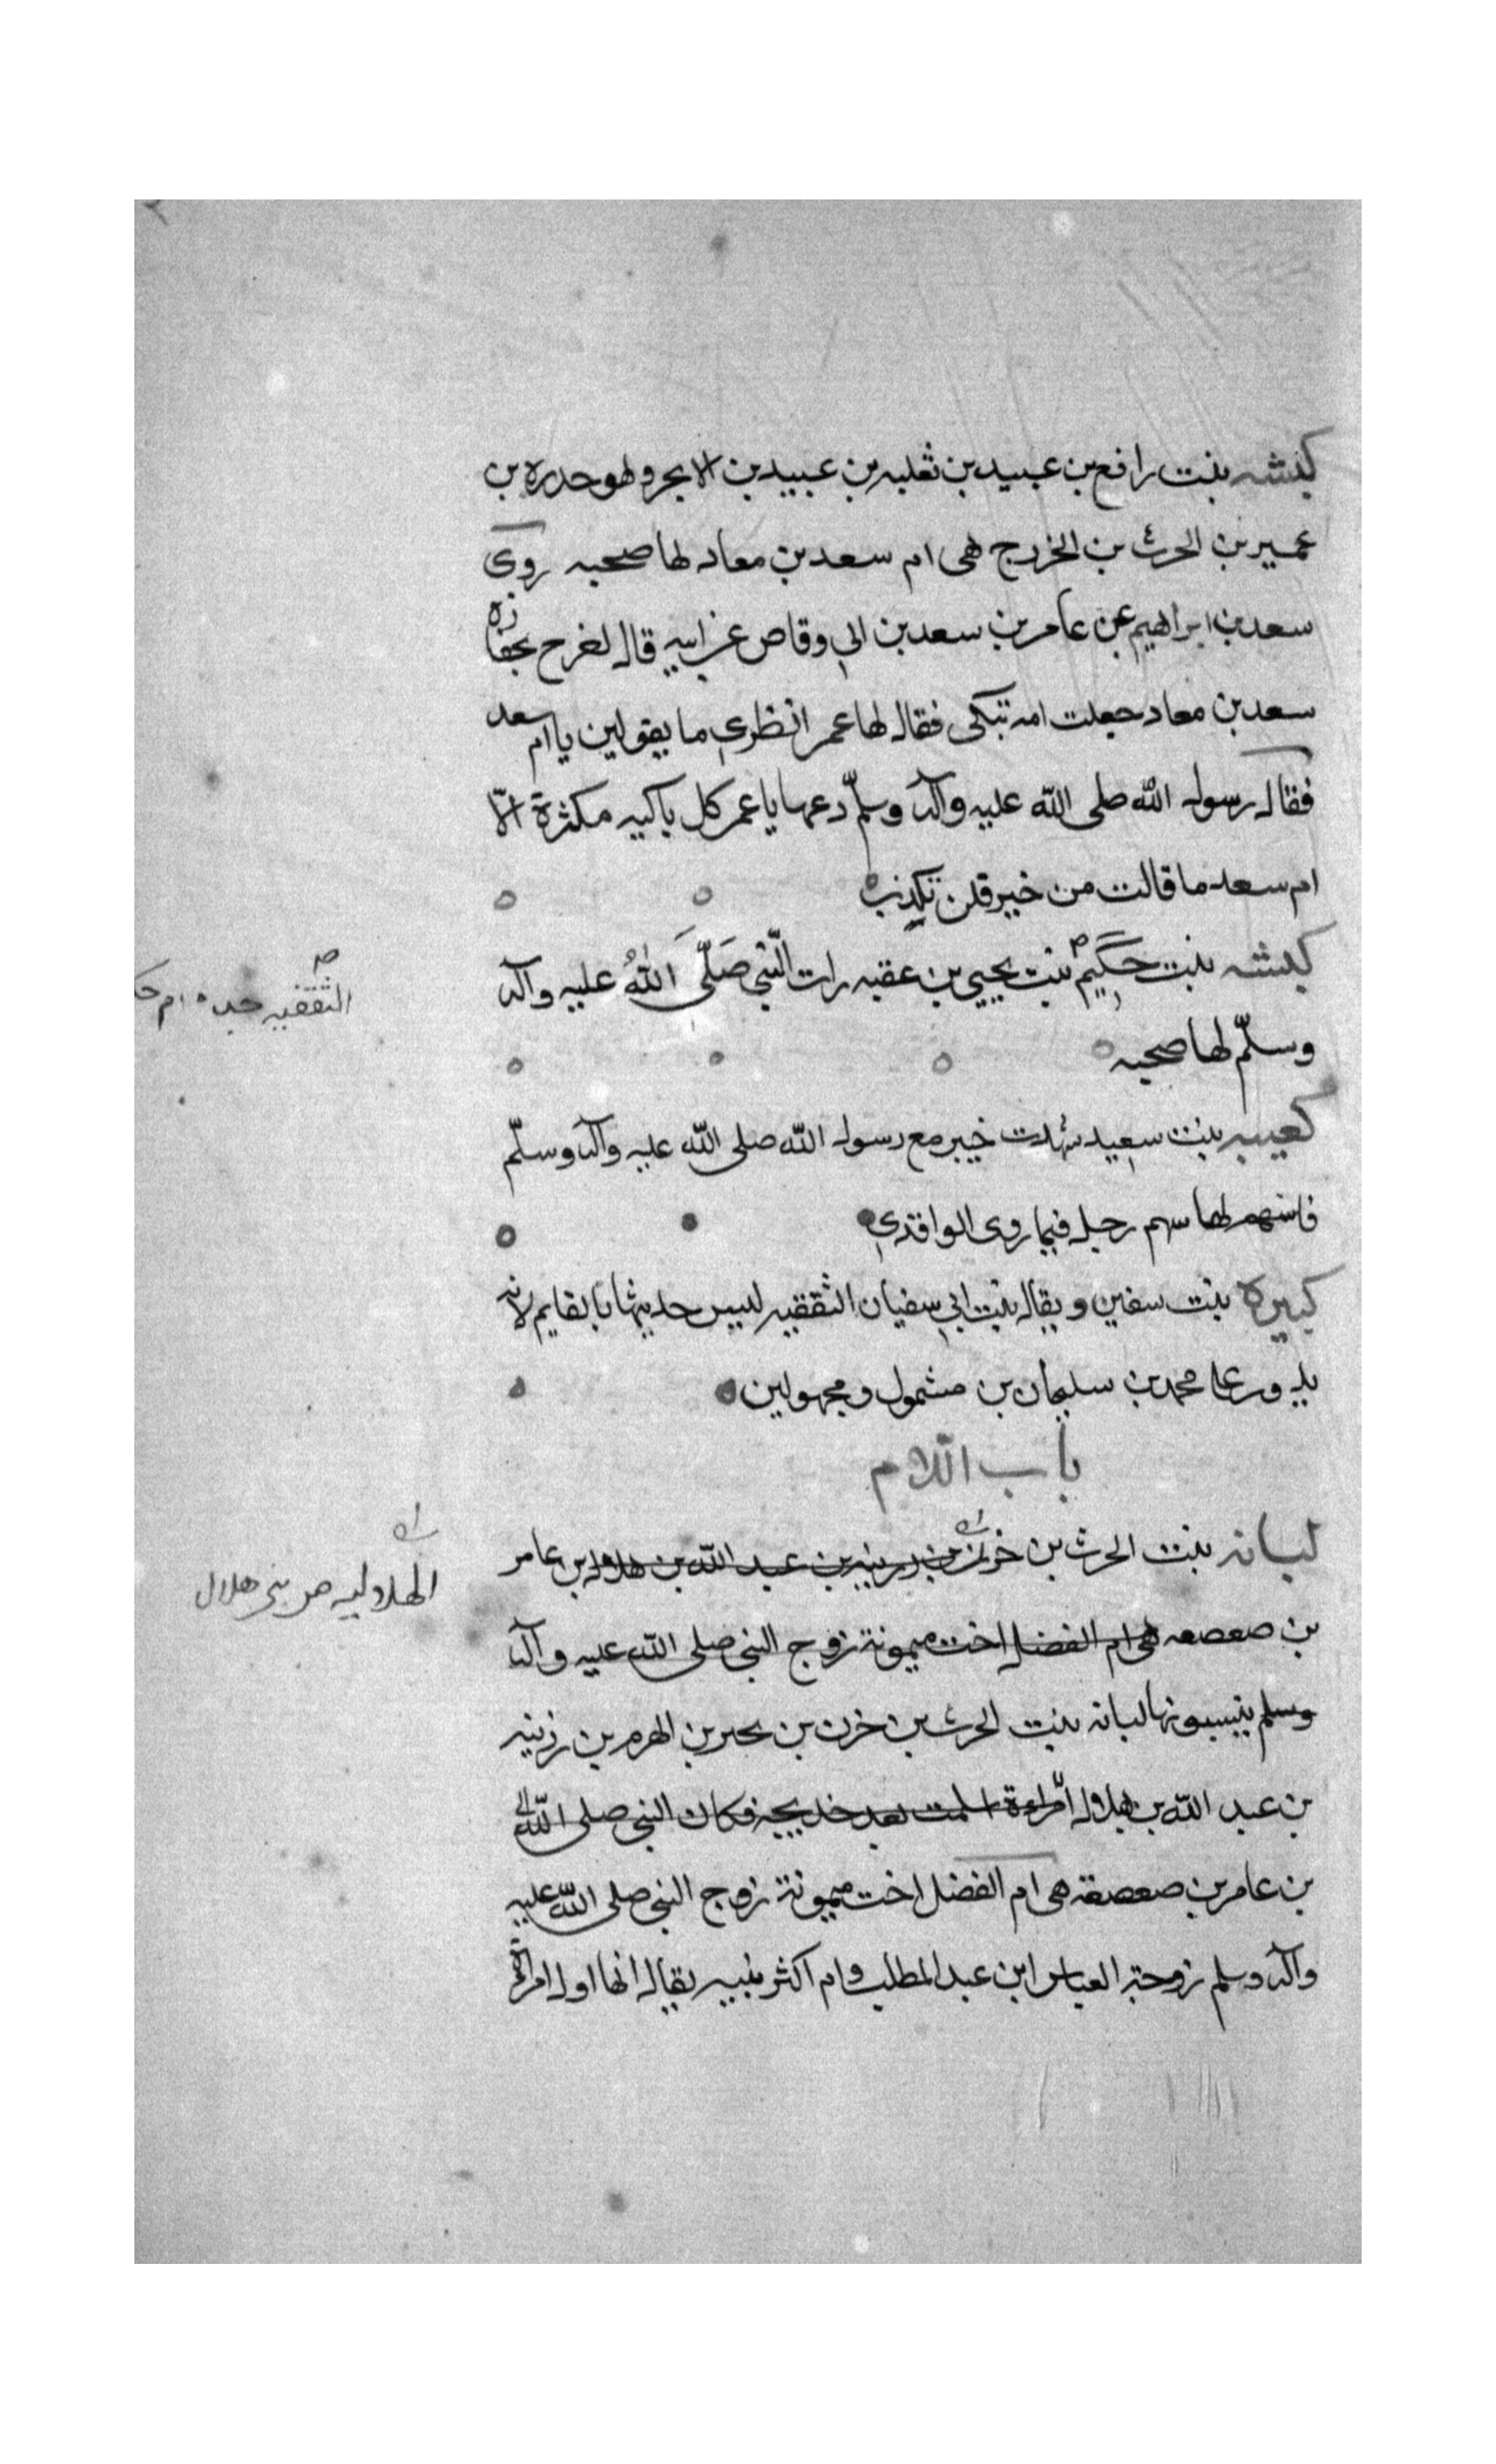 كبشه بنت رافع بن عبيد بن ثعلبه بن عبيد بن الابجر وهو حدره بن
عمير بن الحرث بن الخزرج هى ام سعد بن معاد لها صحبه روى
سعد بن ابراهيم عن عامر بن سعد بن ابي وقاص عن ابيه قال لخرج بجنازه
سعد بن معاد جعلت امه تبكى فقال لها عمر انظرى ما يقولين يا ام سعد
فقال رسول الله صلى الله عليه وآله وسلّم دعها يا عمر كل باكيه مكثرة الّا
ام سعد ما قالت من خير فلن تكذب
كبشه بنت حكيم بنت يحيى بن عقبه رات النّبي صَلّى اللهُ عليه وآله
الثقفيه جده ام
وسلّم لها صحبه
كعيبه بنت سعيد شهدت خيبر مع رسول الله صلى الله عليه وآله وسلّم
فاسهم لها سهم رجل فيما روى الواقدي
كبيرة بنت سفين ويقال بنت ابي سفيان الثقفيه ليس حديثها بالقايم لانه
يدور على محمد بن سليمان بن مشمول ومجهولين
باب اللام
لبانه بنت الحرث بن حزن بن زينه بن عبد الله بن هلال بن عامر
الهلاليه من بنى هلال
بن صعصعه هى ام الفضل اخت ميمونة زوج النبي صلى الله عليه وآله
وسلم ينسبونها لبانه بنت الحرث بن خزن بن بحير بن الهرم بن زنيه
بن عبد الله بن هلال امراءة اسلمت بعد خديجه فكان النبي صلى الله
بن عامر بن صعصعه هى ام الفضل اخت ميمونة زوج النبي صلى الله عليه
وآله وسلم زوجة العباس ابن عبد المطلب وام اكثر بنيه يقال انها اول امراة